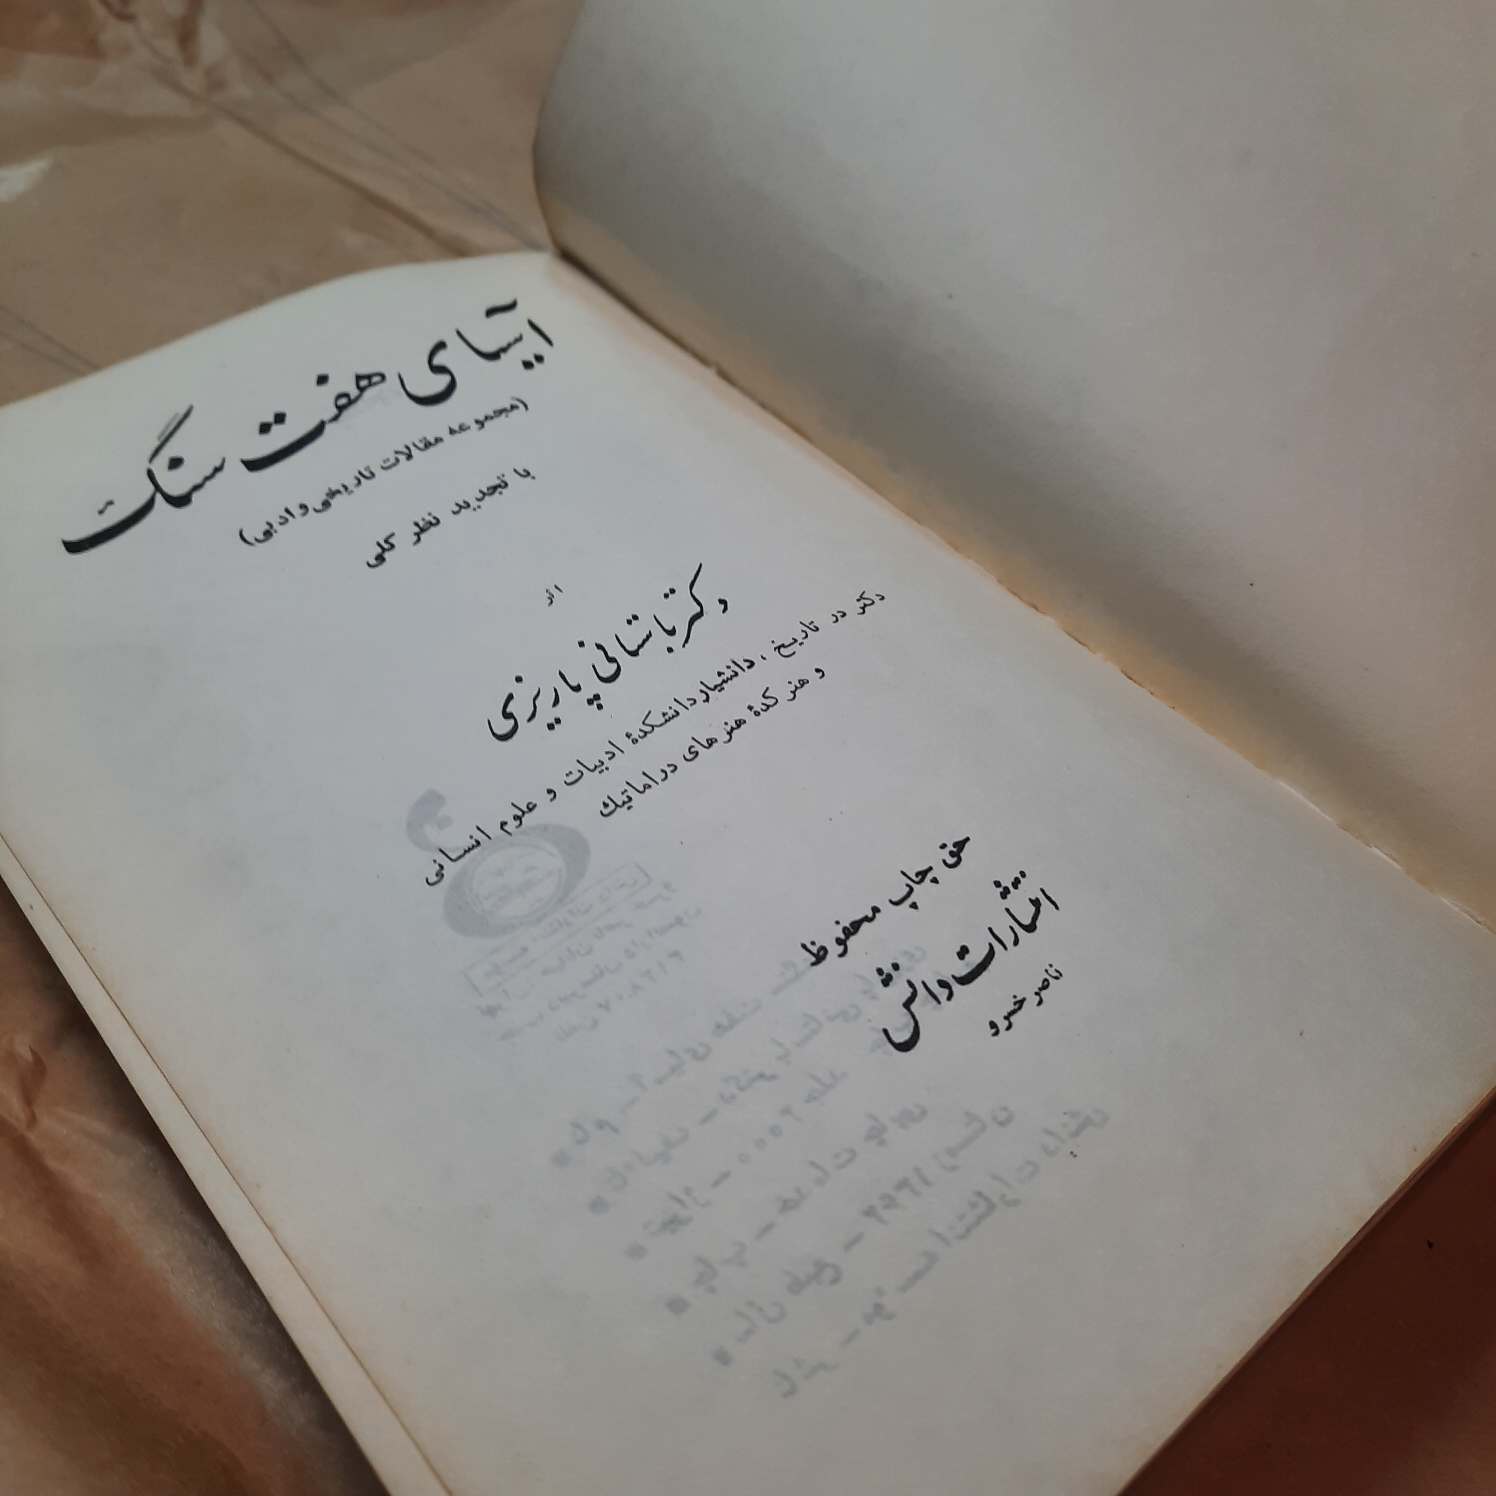 آسیای هفت سنگ
(مجموعه مقالات تاریخی و ادبی)
با تجدید نظر کلی
اثر
دکتر باستانی پاریزی
دکتر در تاریخ، دانشیار دانشکدهٔ ادبیات و علوم انسانی
و هنرکدهٔ هنرهای دراماتیک
حق چاپ محفوظ
انتشارات دانش
ناصر خسرو